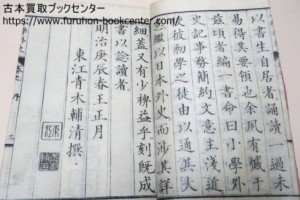 古本買取ブックセンター
以書生自居者誦讀一過未
領也余夙有慨于
茲頃者編一書命曰小學外
史記事務簡約文意主淺近
初學之徒由以通其大
繼以日本外史而涉其詳
細蓋又有少裨益乎刻既成
書以諗讀者
明治庚辰春王正月
東江青木輔清撰
www.furuhon-bookcenter.com/